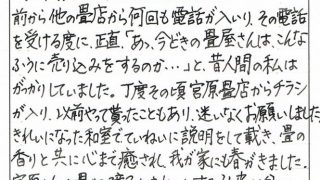 前から他の畳店から何回も電話が入いり、その電話
を受ける度に、正直「あっ、今どきの畳屋さんは、こんな
ふうに売り込みをするのか…」と、昔人間の私は
がっかりしていました。丁度その頃宮原畳店からチラシ
が入り、以前やって貰ったこともあり、迷いなくお願いしました。
きれいになった和室でていねいに説明をして戴き、畳の
香りと共に心まで癒され、我が家にも春がきました。